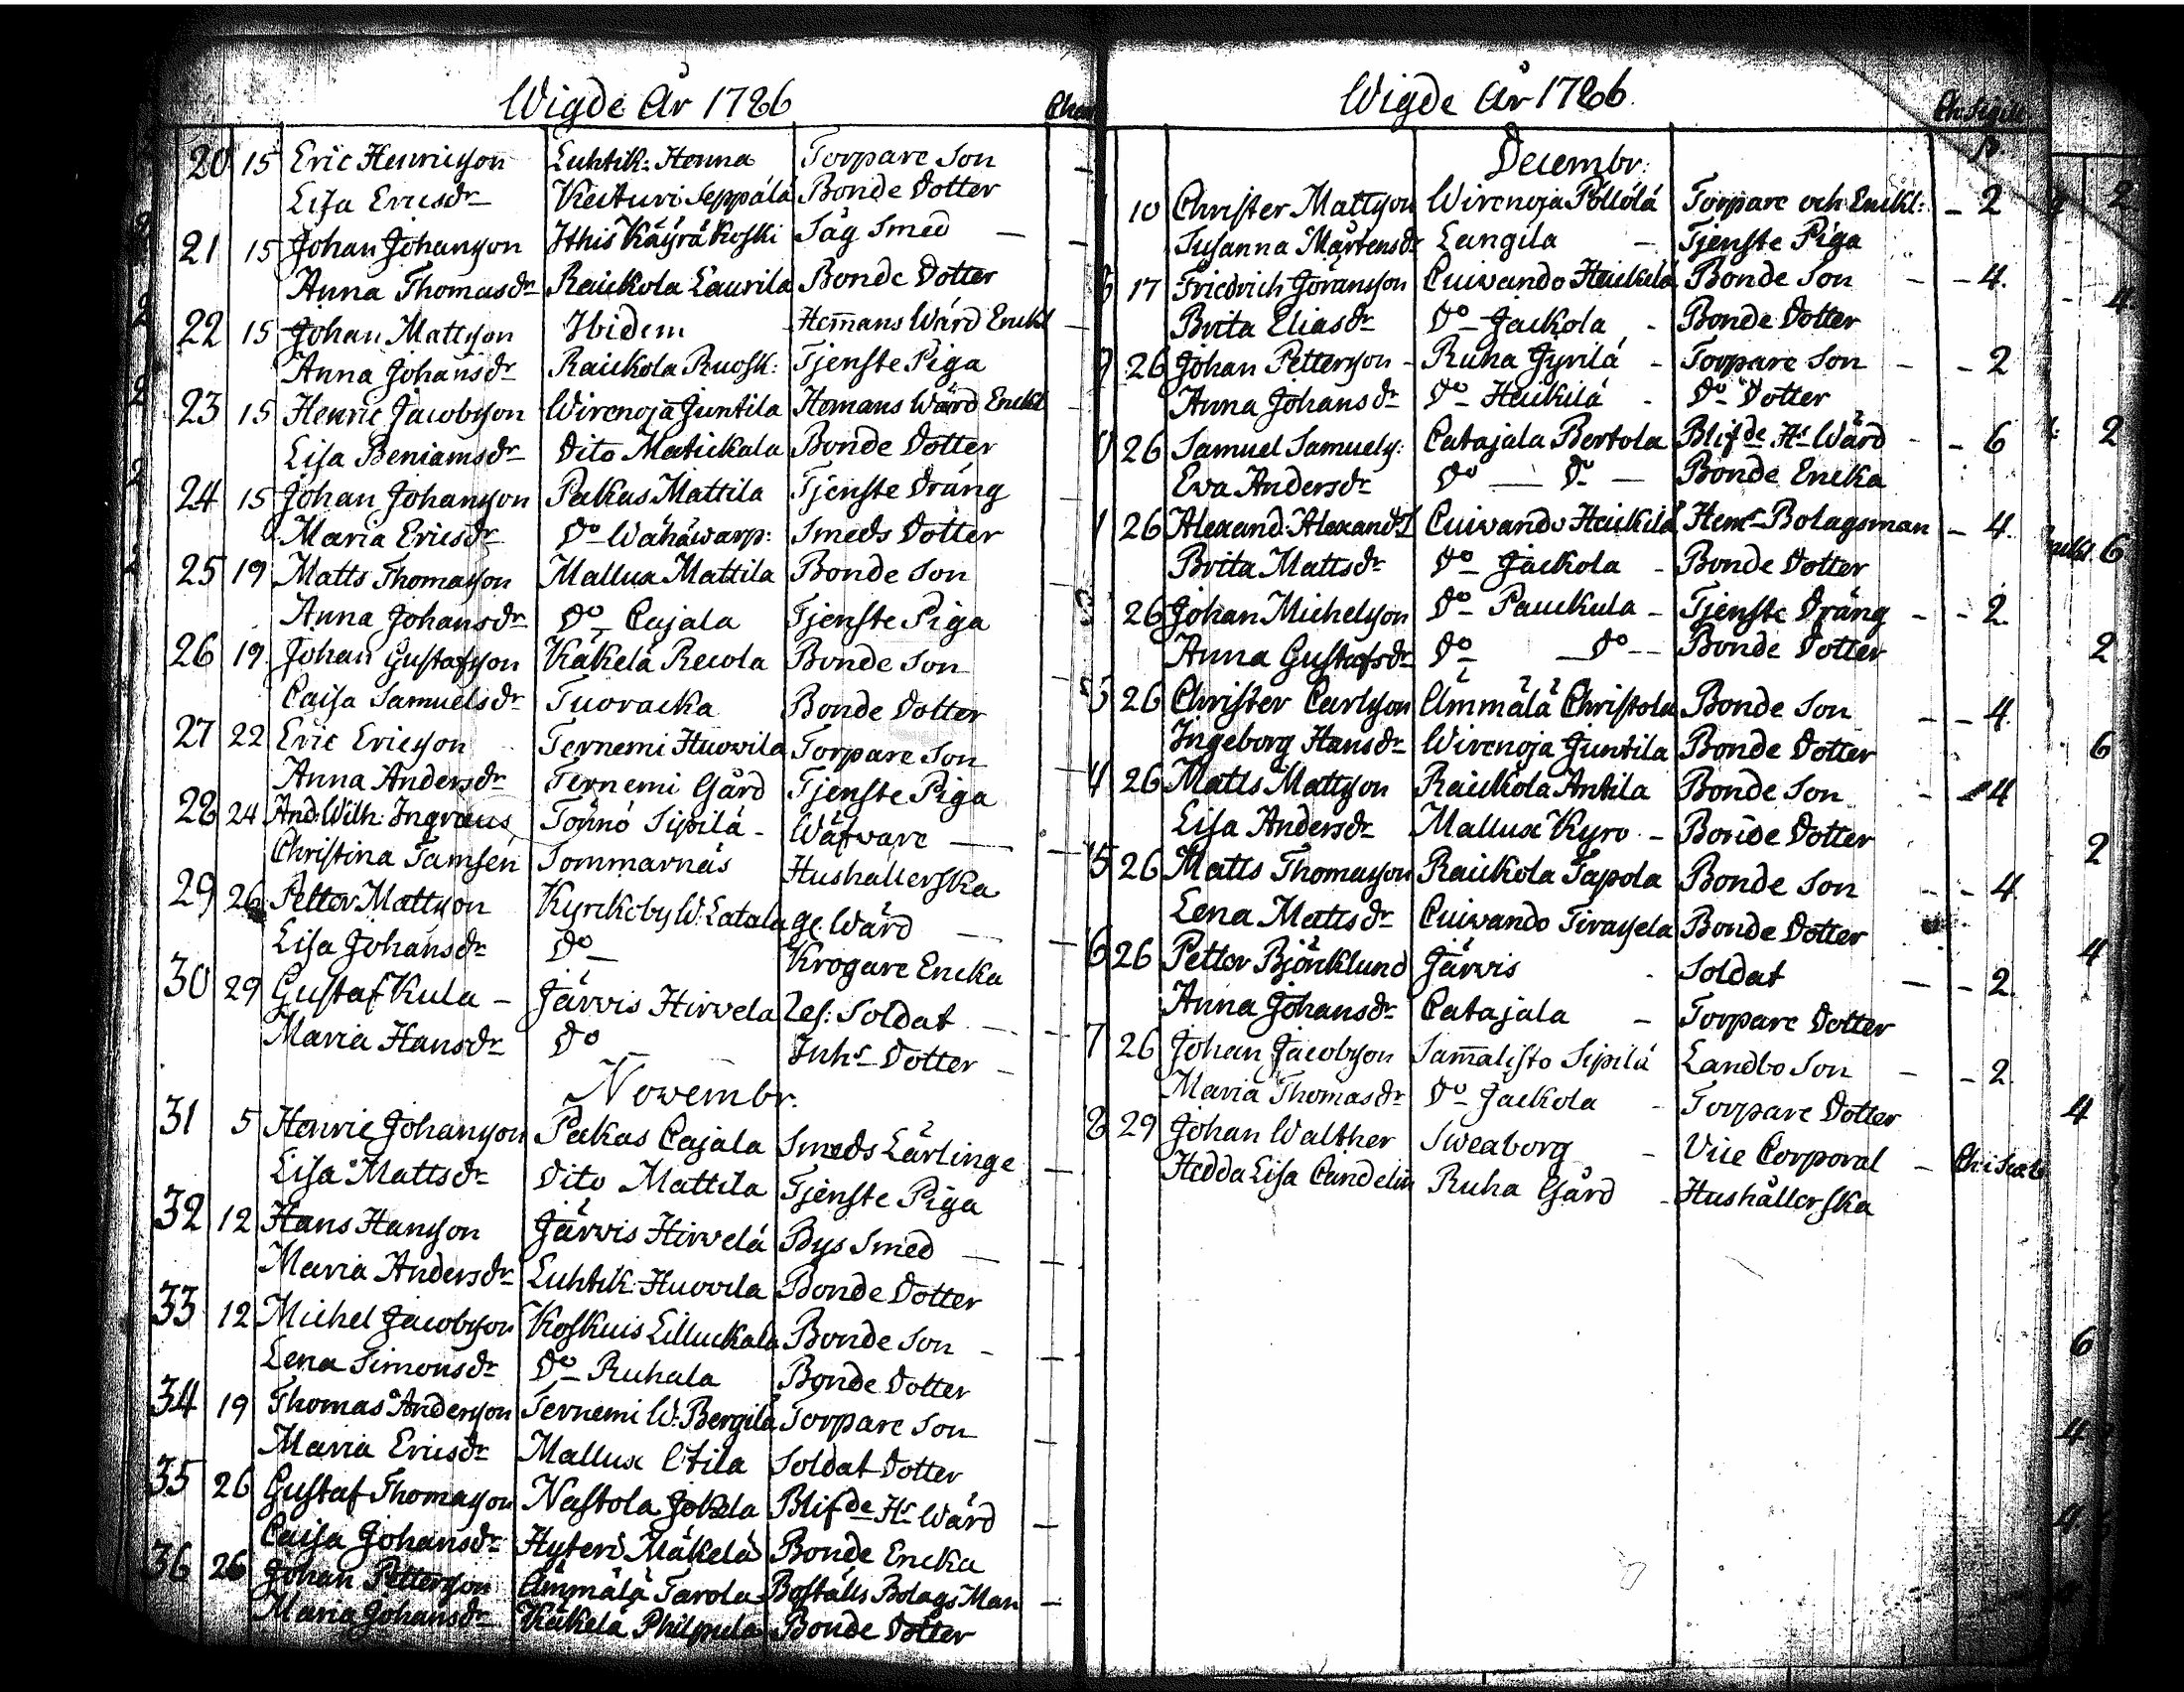 Wigde År 1786
20 15 Eric Henricsson Luhtik: Henna Torpare Son
Lisa Ericsdr Keituri Seppälä Bonde Dotter
21 15 Johan Johansson Ithis Käyrä Koski Såg Smed
Anna Thomasdr Raickola Laurila Bonde Dotter
22 15 Johan Mattsson Ibidem Hem̄ans Wärd Enckl
Anna Johansdr Raickola Ruosk: Tjenste Piga
23 15 Henric Jacobsson Wirenoja Juntila Hemans Wärd Enckl
Lisa Beniamsdr Dito Matickala Bonde Dotter
24 15 Johan Johansson Pakas Mattila Tjenste Dräng
Maria Ericsdr Do Wähäwarp: Smeds Dotter
25 19 Matts Thomasson Mallux Mattila Bonde Son
Anna Johansdr Do Cajala Tjenste Piga
26 19 Johan Gustafsson Käkelä Recola Bonde Son
Caisa Samuelsdr Tuoracka Bonde Dotter
27 22 Eric Ericsson Ternemi Huovila Torpare Son
Anna Andersdr Ternemi Gård Tjenste Piga
28 24 And: Wilh: Ingraeus Tönnö Sipilä Wäfvare
Christina Tamsen Sommarnäs Hushållerska
29 26 Petter Mattsson Kyrckoby W: Latala Ge: Wärd
Lisa Johansdr Do Krogare Encka
30 29 Gustaf Kula Järvis Hirvela Res: Soldat
Maria Hansdr Do Inhs Dotter
Novembr.
31 5 Henric Johansson Pakas Cajala Smeds Lärlinge
Lisa Mattsdr Dito Mattila Tjenste Piga
32 12 Hans Hansson Järvis Hirvelä Bys Smed
Maria Andersdr Luhtik: Huovila Bonde Dotter
33 12 Michel Jacobsson Koskuis Lilluckala Bonde Son
Lena Simonsdr Do Ruhala Bonde Dotter
34 19 Thomas Andersson Ternemi W: Bergilä Torpare Son
Maria Ericsdr Mallux Otila Soldat Dotter
35 26 Gustaf Thomasson Nastola Jokela Blifde Hs Wärd
Caisa Johansdr Hyteri Mäkelä Bonde Encka
36 26 Johan Pettersson Ämmälä Tarola Boställs Bolags Man
Maria Johansdr Käkelä Philpula Bonde Dotter
Wigde År 1786.
Decembr:
10 Christer Mattsson Wirenoja Pöllölä Torpare och Enckl: 2
Susanna Mårtensdr Langila Tjenste Piga
17 Friedrich Göransson Cuivando Heickilä Bonde Son 4.
Brita Eliasdr Do Jackola Bonde Dotter
26 Johan Pettersson Ruha Jyrilä Torpare Son 2
Anna Johansdr Do Heickilä Do Dotter
26 Samuel Samuels: Catajala Bertola Blifde Hs Wärd 6
Eva Andersdr Do Do Bonde Encka
26 Alexand: Alexand:s Cuivando Heickilä Hems Bolagsman 4.
Brita Mattsdr Do Jackola Bonde Dotter
26 Johan Michelsson Do Pauckula Tjenste Dräng 2.
Anna Gustafsdr Do Do Bonde Dotter
26 Christer Carlsson Ämmälä Christola Bonde Son 4.
Ingeborg Hansdr Wirenoja Juntila Bonde Dotter
26 Matts Mattsson Raickola Antila Bonde Son 4
Lisa Andersdr Mallux Kyro Bonde Dotter
26 Matts Thomasson Raickola Tapola Bonde Son 4.
Lena Mattsdr Cuivando Bonde Dotter
26 Petter Björklund Järvis Soldat 2.
Anna Johansdr Catajala Torpare Dotter
26 Johan Jacobsson Sam̄alisto Sipilä Landbo Son 2
Maria Thomasdr Do Jackola Torpare Dotter
29 Johan Walther Sweaborg Vice Corporal
Hedda Lisa Candelin Ruha Gård Hushållerska